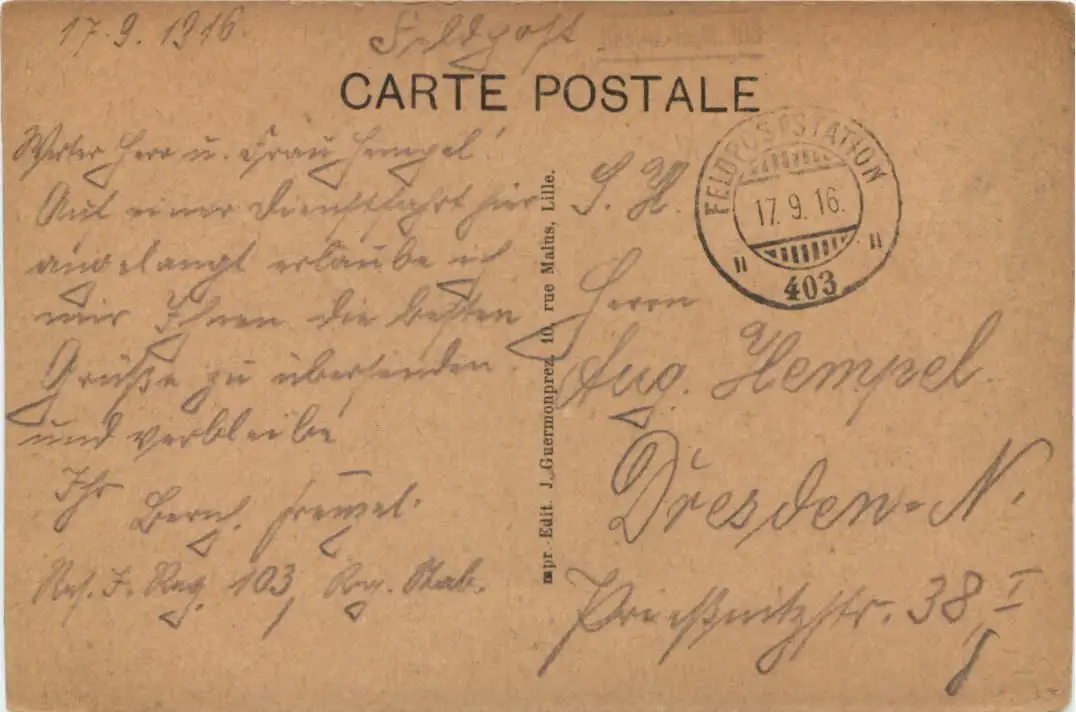 17.9.1916.
Feldpost
CARTE POSTALE
Werter Herr u. Frau Hempel!
Auf einer Dienstfahrt hier
angelangt erlaube ich
mir Ihnen die besten
Grüße zu übersenden
und verbleibe
Ihr
Bernh. Frenzel.
Res. I. Reg. 103, Reg. Stab.
Impr.-Edit. J. Guermonprez, 10, rue Malus, Lille.
FELDPOSTSTATION
17.9.16.
" 403 "
S. H.
Herrn
Aug. Hempel
Dresden-N.
Prießnitzstr. 38, I